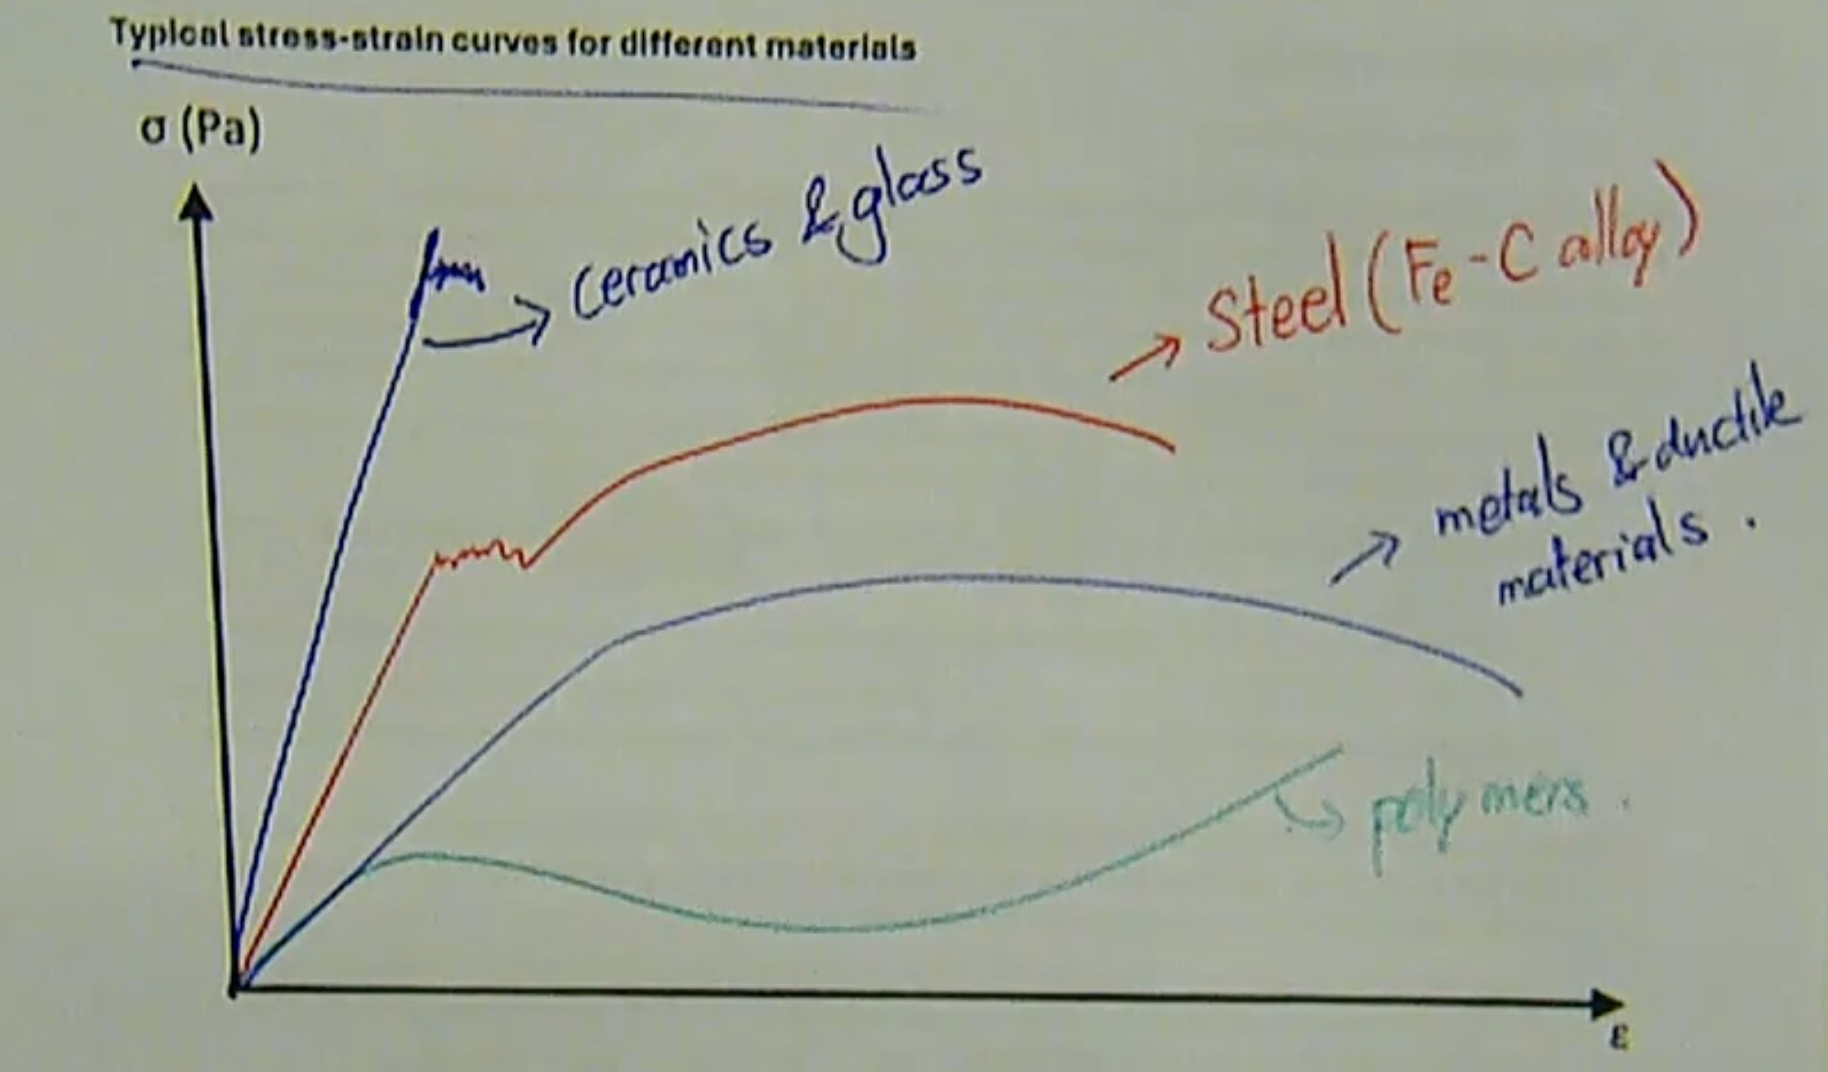 Typical stress-strain curves for different materials
σ (Pa)
ceramics & glass
Steel (Fe-C alloy)
metals & ductile
materials.
polymers.
ε